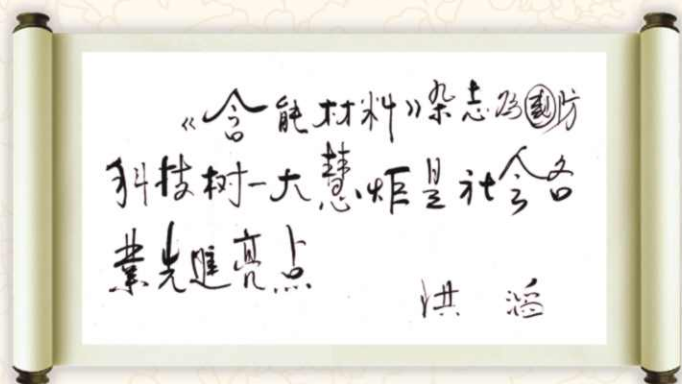 《含能材料》杂志为國防
科技树一大慧炬是社会各
業先進亮点
洪滔